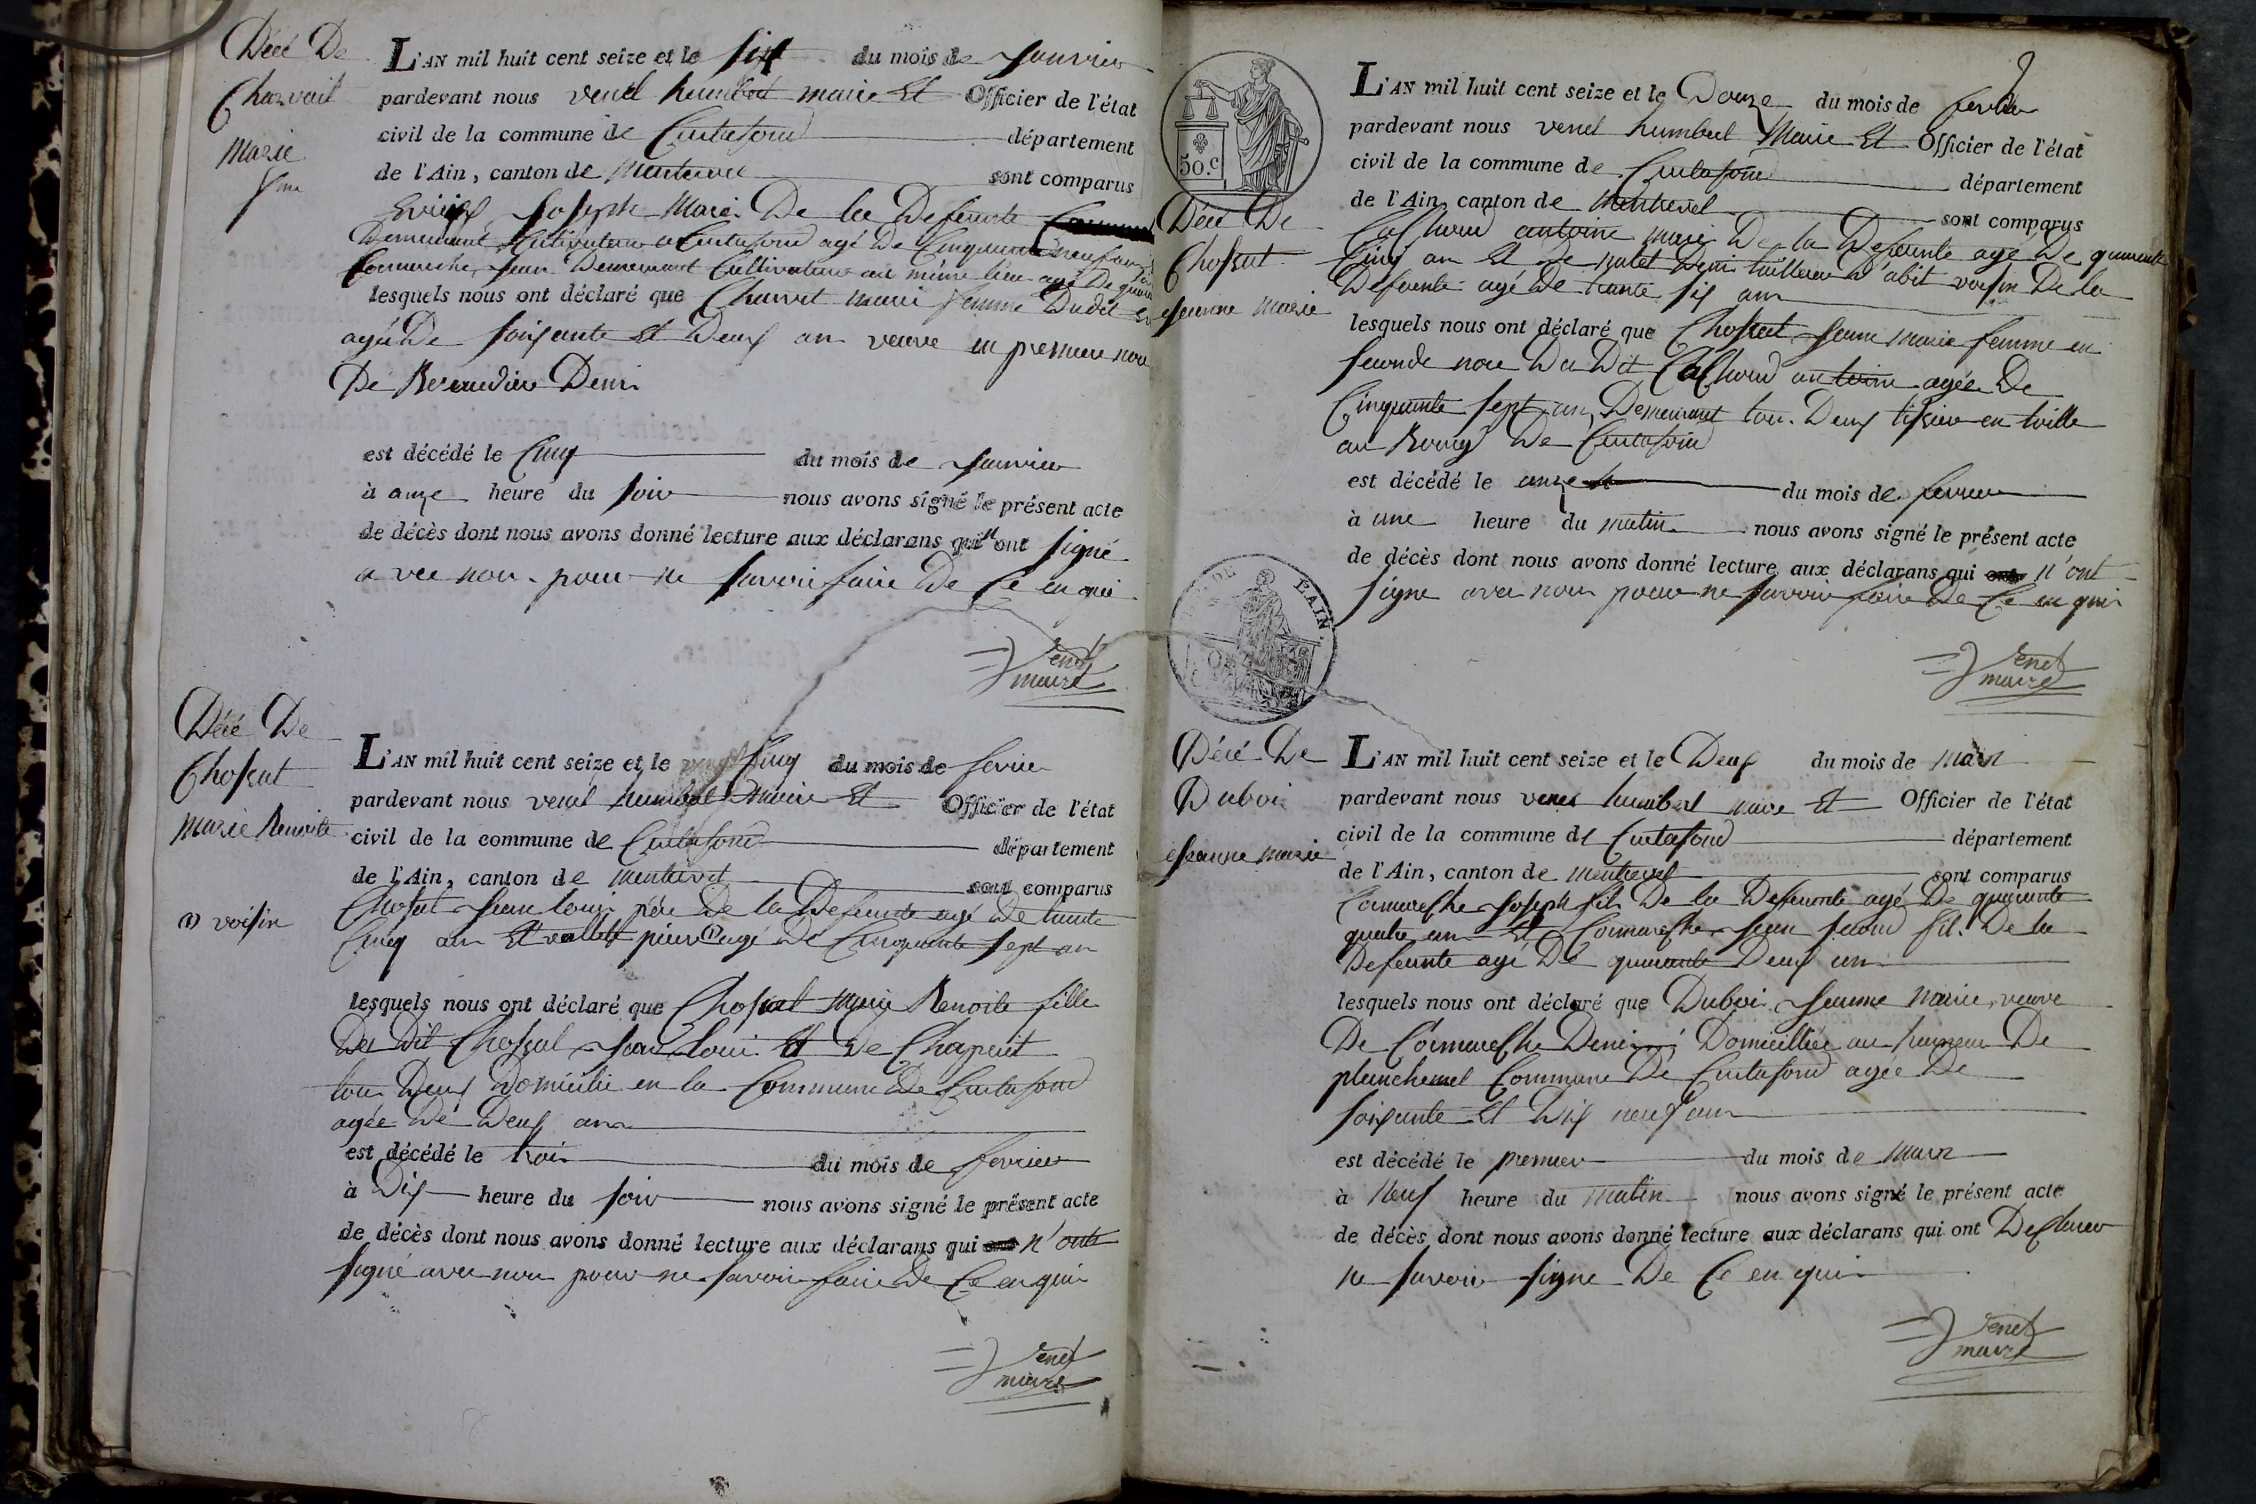 Décé De
Charvait
Marie
fme
L'AN mil huit cent seize et le six du mois de Janvier
pardevant nous venet humbert maire Et Officier de l'état
civil de la commune de Curtafond département
de l'Ain, canton de Montrevel sont comparus
Joseph Marie De la Defeunte
Demeurant Cultivateur a Curtafond agé De Cinquante neuf an
Comareche Jean Demeurant Cultivateur au même lieu agé De
lesquels nous ont déclaré que Charvet marie femme Dudit
agé De soixante Et Deux an veuve en premiere noce
De Denis
est décédé le Cinq du mois de Janvier
à onze heure du soir nous avons signé le présent acte
de décès dont nous avons donné lecture aux déclarans qui n'ont signé
avec nous pour ne savoir faire De Ce enquis
Venet
maire
Décé De
Chossat
Marie Benoite
(1) voisin
L'AN mil huit cent seize et le Cinq du mois de fevrier
pardevant nous venet humbert Maire Et Officier de l'état
civil de la commune de Curtafond département
de l'Ain, canton de Montrevel sont comparus
Chossat Jean Louis père De la Defeunte agé De trente
Cinq an Et vallet pierre (1) agé De Cinquante sept an
lesquels nous ont déclaré que Chossat Marie Benoite fille
Du Dit Chossat Jean Louis Et De Chapuit
tou Deux Domicilié en la Commune De Curtafond
agée De Deux an
est décédé le trois du mois de fevrier
à Dix heure du soir nous avons signé le présent acte
de décès dont nous avons donné lecture aux déclarans qui n'ont
signé avec nou pour ne savoir faire De Ce enquis
Venet
maire
2
50.c
Décé De
Chossat
Jeanne Marie
L'AN mil huit cent seize et le Douze du mois de fevrier
pardevant nous venet humbert Maire Et Officier de l'état
civil de la commune de Curtafond département
de l'Ain, canton de Montrevel sont comparus
antoine mari De la Defeunte agé De quarente
Cinq an Et De Denis tailleur D'abit voisin De la
Defeunte agé De trante six an
lesquels nous ont déclaré que Chossat Jeanne marie femme en
seconde noce Du Dit antoine agée De
Cinquante sept an Demeurant tou Deux tissier en toille
au Bourg De Curtafond
est décédé le onze du mois de fevrier
à une heure du matin nous avons signé le présent acte
de décès dont nous avons donné lecture aux déclarans qui n'ont
signe avec nous pour ne savoir faire De Ce enquis
Venet
maire
L'AIN.
Décé De
Duboi
Jeanne Marie
L'AN mil huit cent seize et le Deux du mois de mars
pardevant nous venet humbert maire Et Officier de l'état
civil de la commune de Curtafond département
de l'Ain, canton de Montrevel sont comparus
Comareche Joseph fils De la Defeunte agé De quarente
quatre an Et Comareche Jean second fils De la
Defeunte agé De quarente Deux an
lesquels nous ont déclaré que Duboi Jeanne Marie veuve
De Comareche Denis Domicilliée au hameau De
planchemel Commune De Curtafond agée De
soixante Et Dix neuf an
est décédé le premier du mois de Mars
à Neuf heure du Matin nous avons signé le présent acte
de décès dont nous avons donné lecture aux déclarans qui ont Declarer
ne savoir signe De Ce enquis
Venet
maire